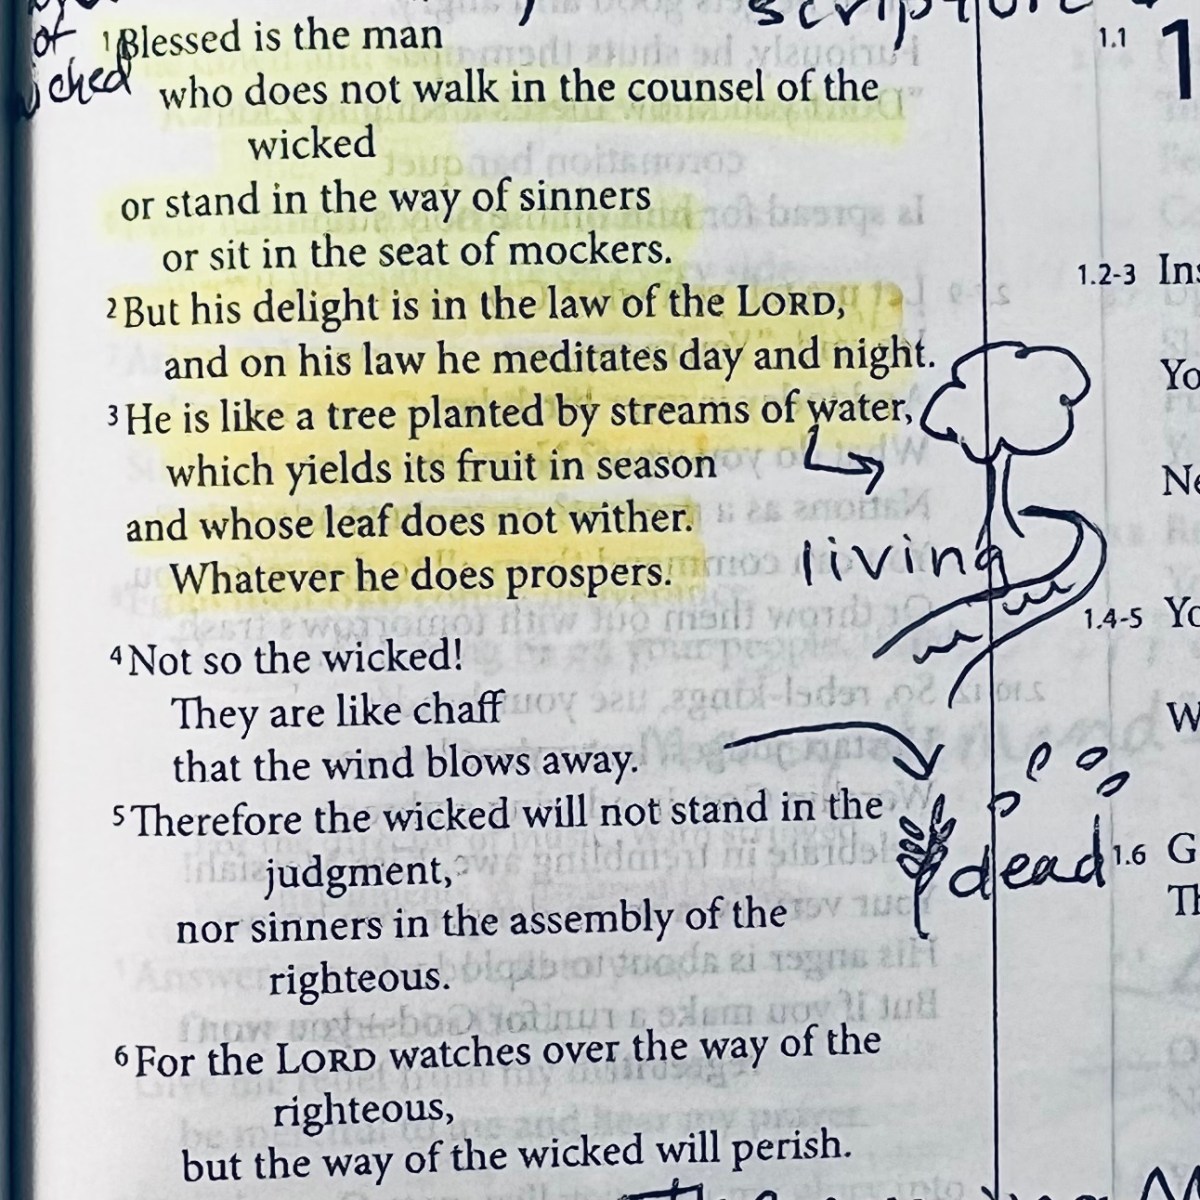 scripture
of
wicked
1 Blessed is the man
who does not walk in the counsel of the
wicked
or stand in the way of sinners
or sit in the seat of mockers.
2 But his delight is in the law of the LORD,
and on his law he meditates day and night.
3 He is like a tree planted by streams of water,
which yields its fruit in season
and whose leaf does not wither.
Whatever he does prospers.
living
4 Not so the wicked!
They are like chaff
that the wind blows away.
5 Therefore the wicked will not stand in the
judgment,
dead
nor sinners in the assembly of the
righteous.
6 For the LORD watches over the way of the
righteous,
but the way of the wicked will perish.
1.1
1.2-3
Yo
1.4-5 Yo
W
1.6 G